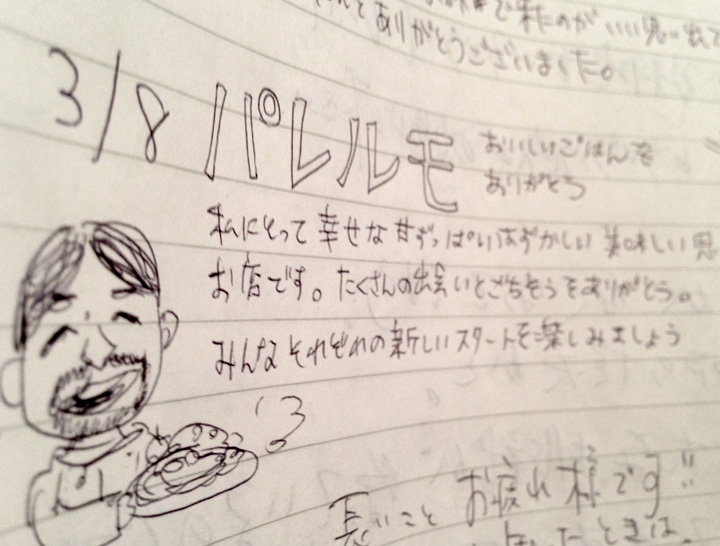 で来たのがいい思い出で
ありがとうございました。
3/8 パレルモ
おいしいごはんを
ありがとう
私にとって幸せな甘ずっぱいはずかしい美味しい思
お店です。たくさんの出会いとごちそうをありがとう。
みんなそれぞれの新しいスタートを楽しみましょう
長いことお疲れ様です!!
ときは、